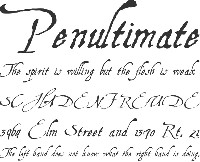 Penultimate
The spirit is willing but the flesh is weak
SCHADENFREUDE
3964 Elm Street and 1370 Rt. 21
The left hand does not know what the right hand is doing.